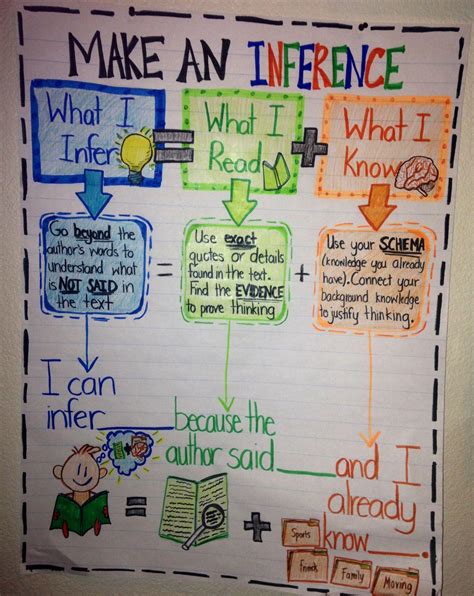 MAKE AN INFERENCE
What I
Infer
=
What I
Read
+
What I
Know
Go beyond the
author's words to
understand what
is NOT SAID in
the text
=
Use exact
quotes or details
found in the text.
Find the EVIDENCE
to prove thinking
+
Use your SCHEMA
(knowledge you already
have). Connect your
background knowledge
to justify thinking.
I can
infer____because the
author said____and I
already
know____.
=
+
Sports
Friends
Family
Moving